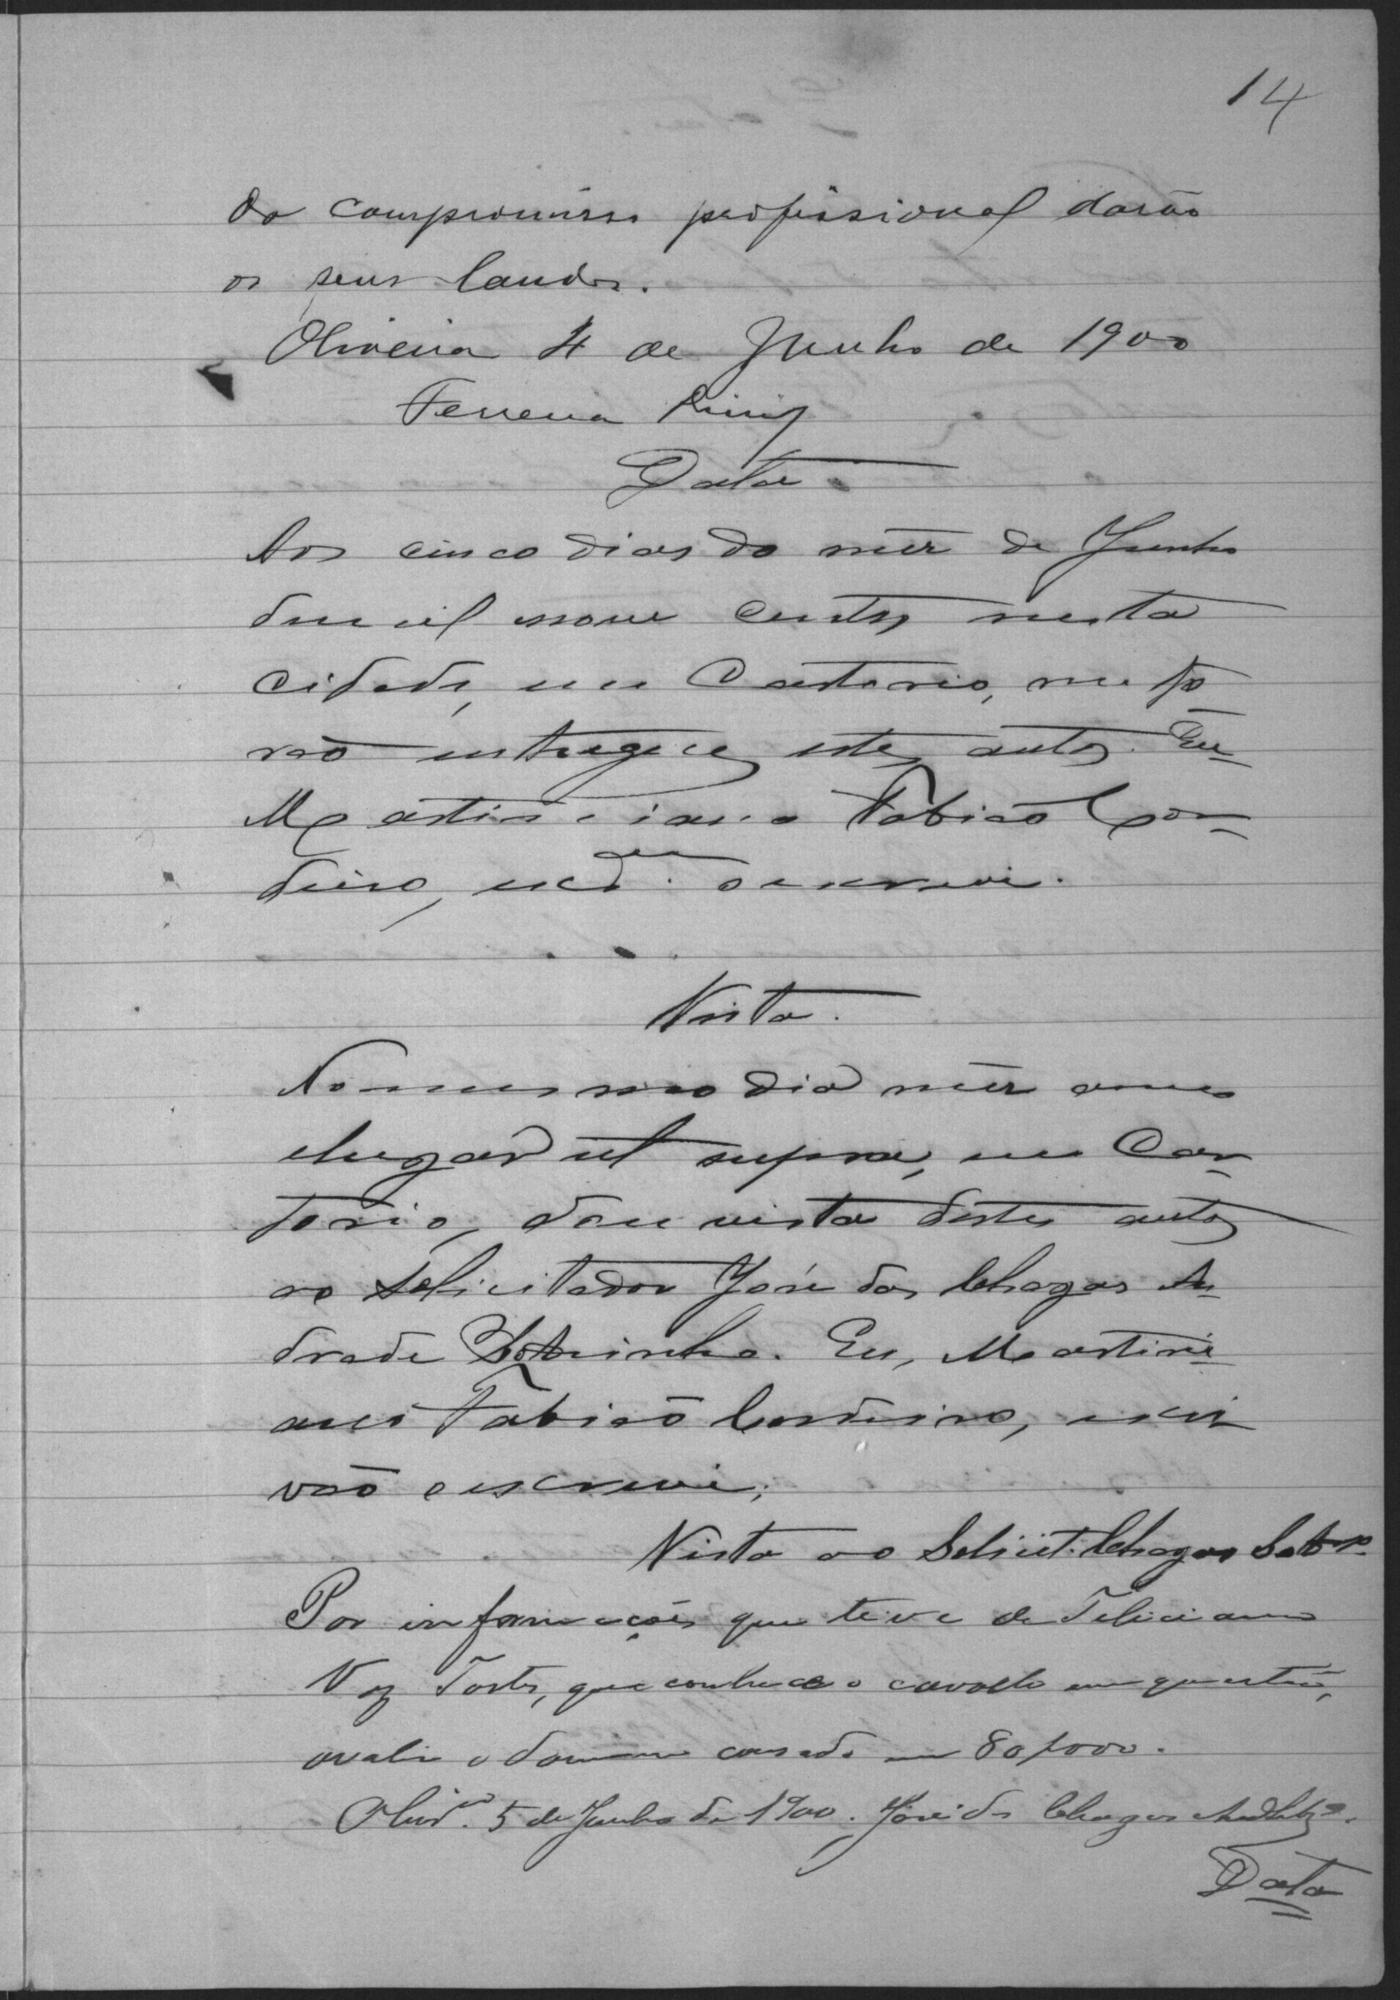 14
do compromisso profissional darão
os seus laudos.
Oliveira 4 de Junho de 1900
Ferreira Diniz
Data.
Aos cinco dias do mez de Junho
de mil nove centos nesta
cidade, em Cartorio, me fo-
rão entregues estes autos. Eu
Martiniano Fabião Cor-
deiro, escrão. o escrevi.
Vista.
No mesmo dia mez anno
e lugar ut supra, em Car-
torio, dou vista destes autos
ao Solicitador José das Chagas An-
drade Sobrinho. Eu, Martini-
ano Fabião Cordeiro, escri
vão o escrevi;
Vista ao Solicit. Chagas Sobr.º
Por informações que teve de Feliciano
Vaz Tostes, que conhece o cavallo em questão,
avalia o damno causado em 80$000.
Olivra. 5 de Junho de 1900. José das Chagas
Data